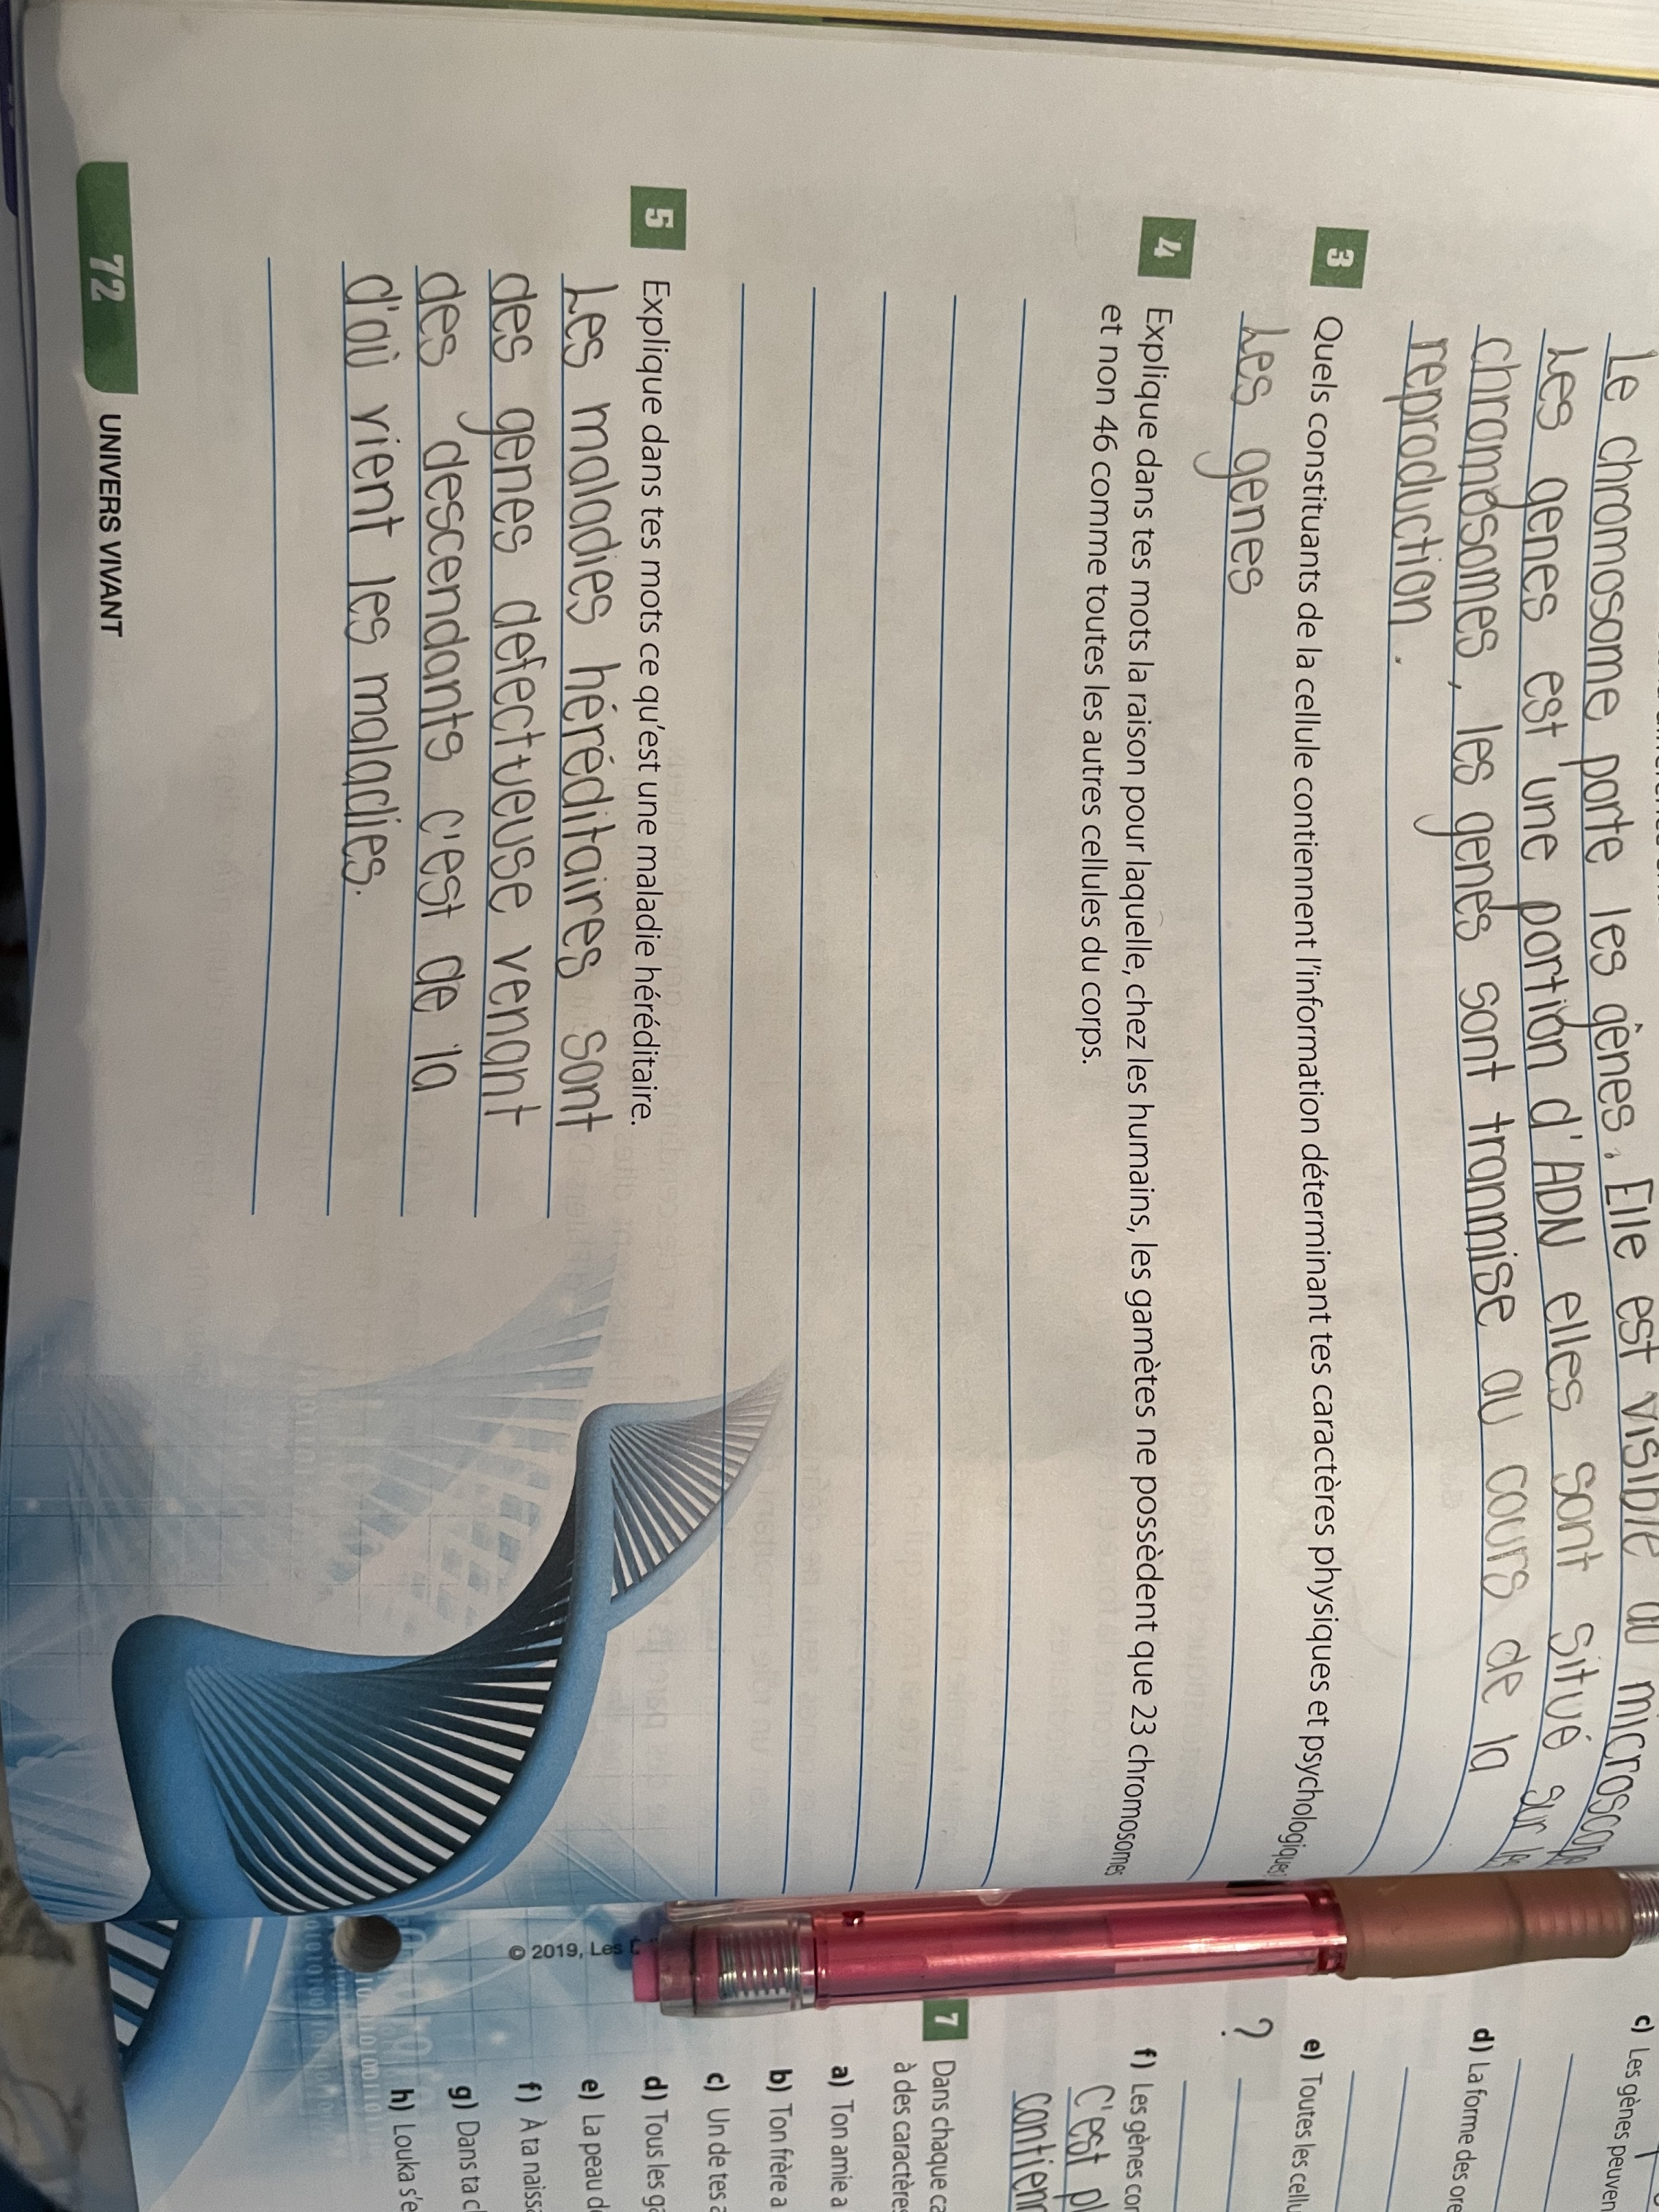 Le chromosome porte les gênes. Elle est visible au microscope
Les genes est une portion d'ADN elles sont situé sur les
chromosomes, les genes sont tranmise au cours de la
reproduction.
3 Quels constituants de la cellule contiennent l'information déterminant tes caractères physiques et psychologiques
Les genes
4 Explique dans tes mots la raison pour laquelle, chez les humains, les gamètes ne possèdent que 23 chromosomes
et non 46 comme toutes les autres cellules du corps.
5 Explique dans tes mots ce qu'est une maladie héréditaire.
Les maladies héréditaires sont
des genes defectueuse venant
des descendants c'est de la
d'où vient les maladies.
72 UNIVERS VIVANT
© 2019, Les
c) Les gènes peuven
d) La forme des ore
e) Toutes les cellu
?
f) Les gènes cor
C'est pl
contienn
7 Dans chaque ca
à des caractères
a) Ton amie a
b) Ton frère a
c) Un de tes a
d) Tous les ga
e) La peau d
f) À ta naiss
g) Dans ta c
h) Louka s'e